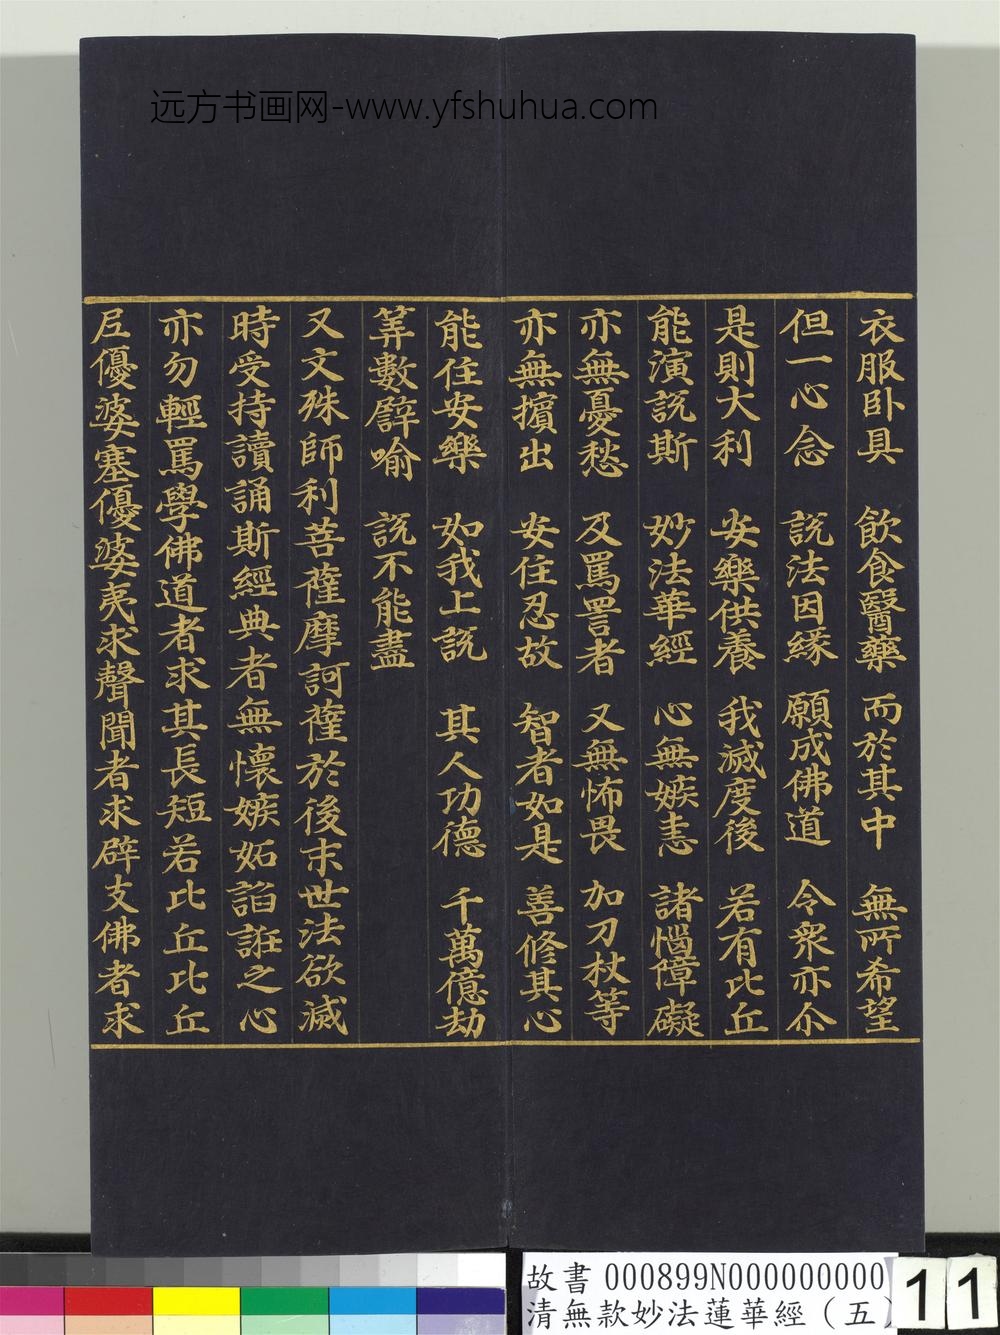 远方书画网-www.yfshuhua.com
衣服卧具 飲食醫藥 而於其中 無所希望
但一心念 說法因緣 願成佛道 令衆亦尒
是則大利 安樂供養 我滅度後 若有比丘
能演說斯 妙法華經 心無嫉恚 諸惱障礙
亦無憂愁 及罵詈者 又無怖畏 加刀杖等
亦無擯出 安住忍故 智者如是 善修其心
能住安樂 如我上說 其人功德 千萬億劫
筭數譬喻 說不能盡
又文殊師利菩薩摩訶薩於後末世法欲滅
時受持讀誦斯經典者無懷嫉妬諂誑之心
亦勿輕罵學佛道者求其長短若比丘比丘
尼優婆塞優婆夷求聲聞者求辟支佛者求
故書 000899N000000000
清無款妙法蓮華經（五）
11